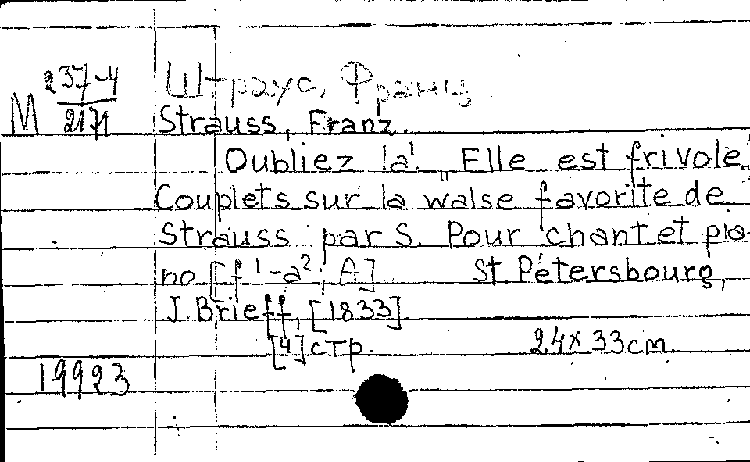 М 237-4/2171
Штраус, Франц.
Strauss, Franz.
Oubliez la! „Elle est frivole."
Couplets sur la walse favorite de
Strauss par S. Pour chant et pia-
no [f¹-a²; A] St Pétersbourg,
J. Brieff, [1833].
[4] стр. 24x33cm.
19923